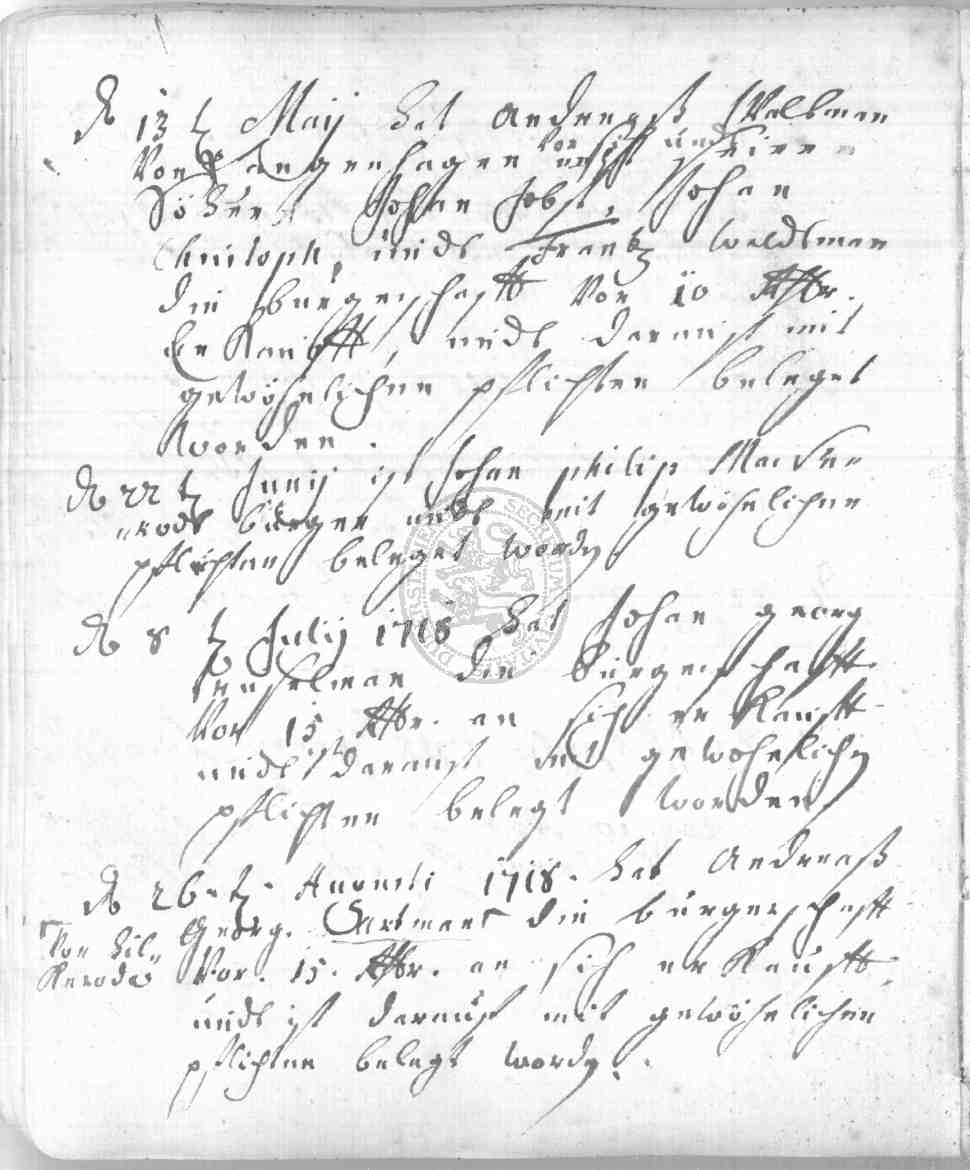 d 13 t Maij hat Andreaß Waltman
Von Langenhagen Vor sich und seinen
Söhnen Johan Jobst, Johan
Christoph, undt Frantz waldtman
die bürgerschafft Vor 10 Rthlr.
er Kaufft, undt darauf mit
gewöhnlichen pflichten beleget
worden.
d 22 t Junij ist Johan philip Macken
rodt bürger undt mit gewöhnlichen
pflichten beleget wordn
d 8 t Julij 1718 hat Johan georg
die bürgerschafft
Vor 15 Rthlr. an sich er Kaufft
undt ist darauf mit gewöhnlichn
pflichten belegt worden
d 26. t. Augusti 1718. hat Andreaß
Georg. Hartman die bürgerschafft
Von Bil-
Keroda Vor. 15. Rthlr. an sich er Kaufft,
undt ist darauf mit gewöhnlichen
pflichten belegt wordn.